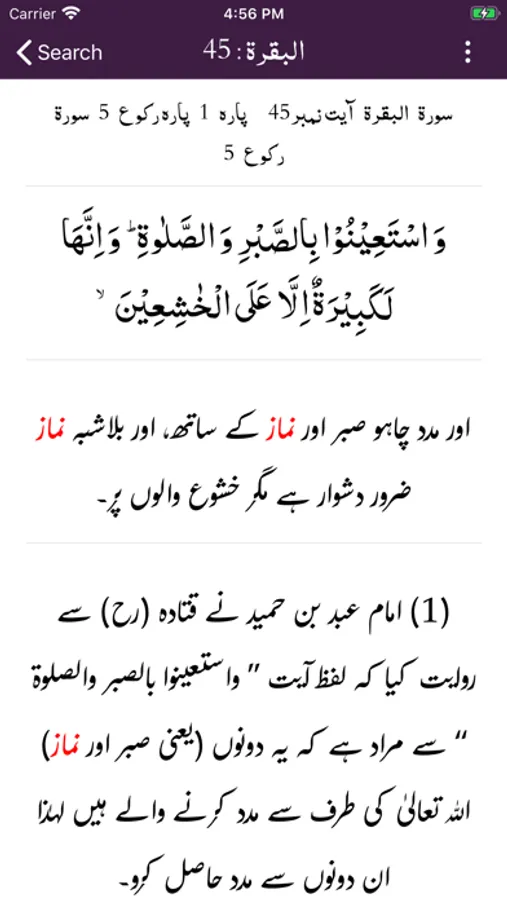 Carrier 4:56 PM
Search البقرة: 45
سورۃ البقرۃ آیت نمبر45 پارہ 1 پارہ رکوع 5 سورۃ
رکوع 5
وَاسْتَعِیْنُوْا بِالصَّبْرِ وَالصَّلٰوةِ ؕ وَاِنَّهَا
لَكَبِیْرَةٌ اِلَّا عَلَی الْخٰشِعِیْنَ ۙ
اور مدد چاہو صبر اور نماز کے ساتھ، اور بلاشبہ نماز
ضرور دشوار ہے مگر خشوع والوں پر۔
(1) امام عبد بن حمید نے قتادہ (رح) سے
روایت کیا کہ لفظ آیت ” واستعینوا بالصبر والصلوۃ
“ سے مراد ہے کہ یہ دونوں (یعنی صبر اور نماز)
اللہ تعالیٰ کی طرف سے مدد کرنے والے ہیں لہٰذا
ان دونوں سے مدد حاصل کرو۔